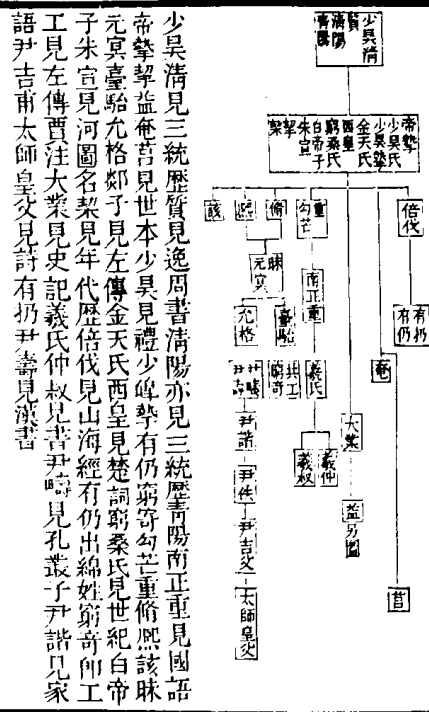 少昊清
質
清陽
青陽
帝摯
少昊氏
少昊摯
金天氏
西皇
窮桑氏
白帝子
朱宣
挈
栔
倍伐
有扔
有仍
奄
莒
大業
益另圖
重
勾芒
南正重
羲氏
羲仲
羲叔
脩
熙
該
昧
元冥
臺駘
允格
共工
窮奇
尹疇
尹壽
尹諧
尹佚
尹吉父
太師皇父
少昊清見三統歷質見逸周書清陽亦見三統歷青陽南正重見國語
帝摯挈益奄莒見世本少昊見禮少皞摯有仍窮奇勾芒重脩熙該昧
元冥臺駘允格郯子見左傳金天氏西皇見楚詞窮桑氏見世紀白帝
子朱宣見河圖名栔見年代歷倍伐見山海經有仍出緡姓窮奇卽工
工見左傳賈注大業見史記羲氏仲叔見書尹疇見孔叢子尹諧見家
語尹吉甫太師皇父見詩有扔尹壽見漢書